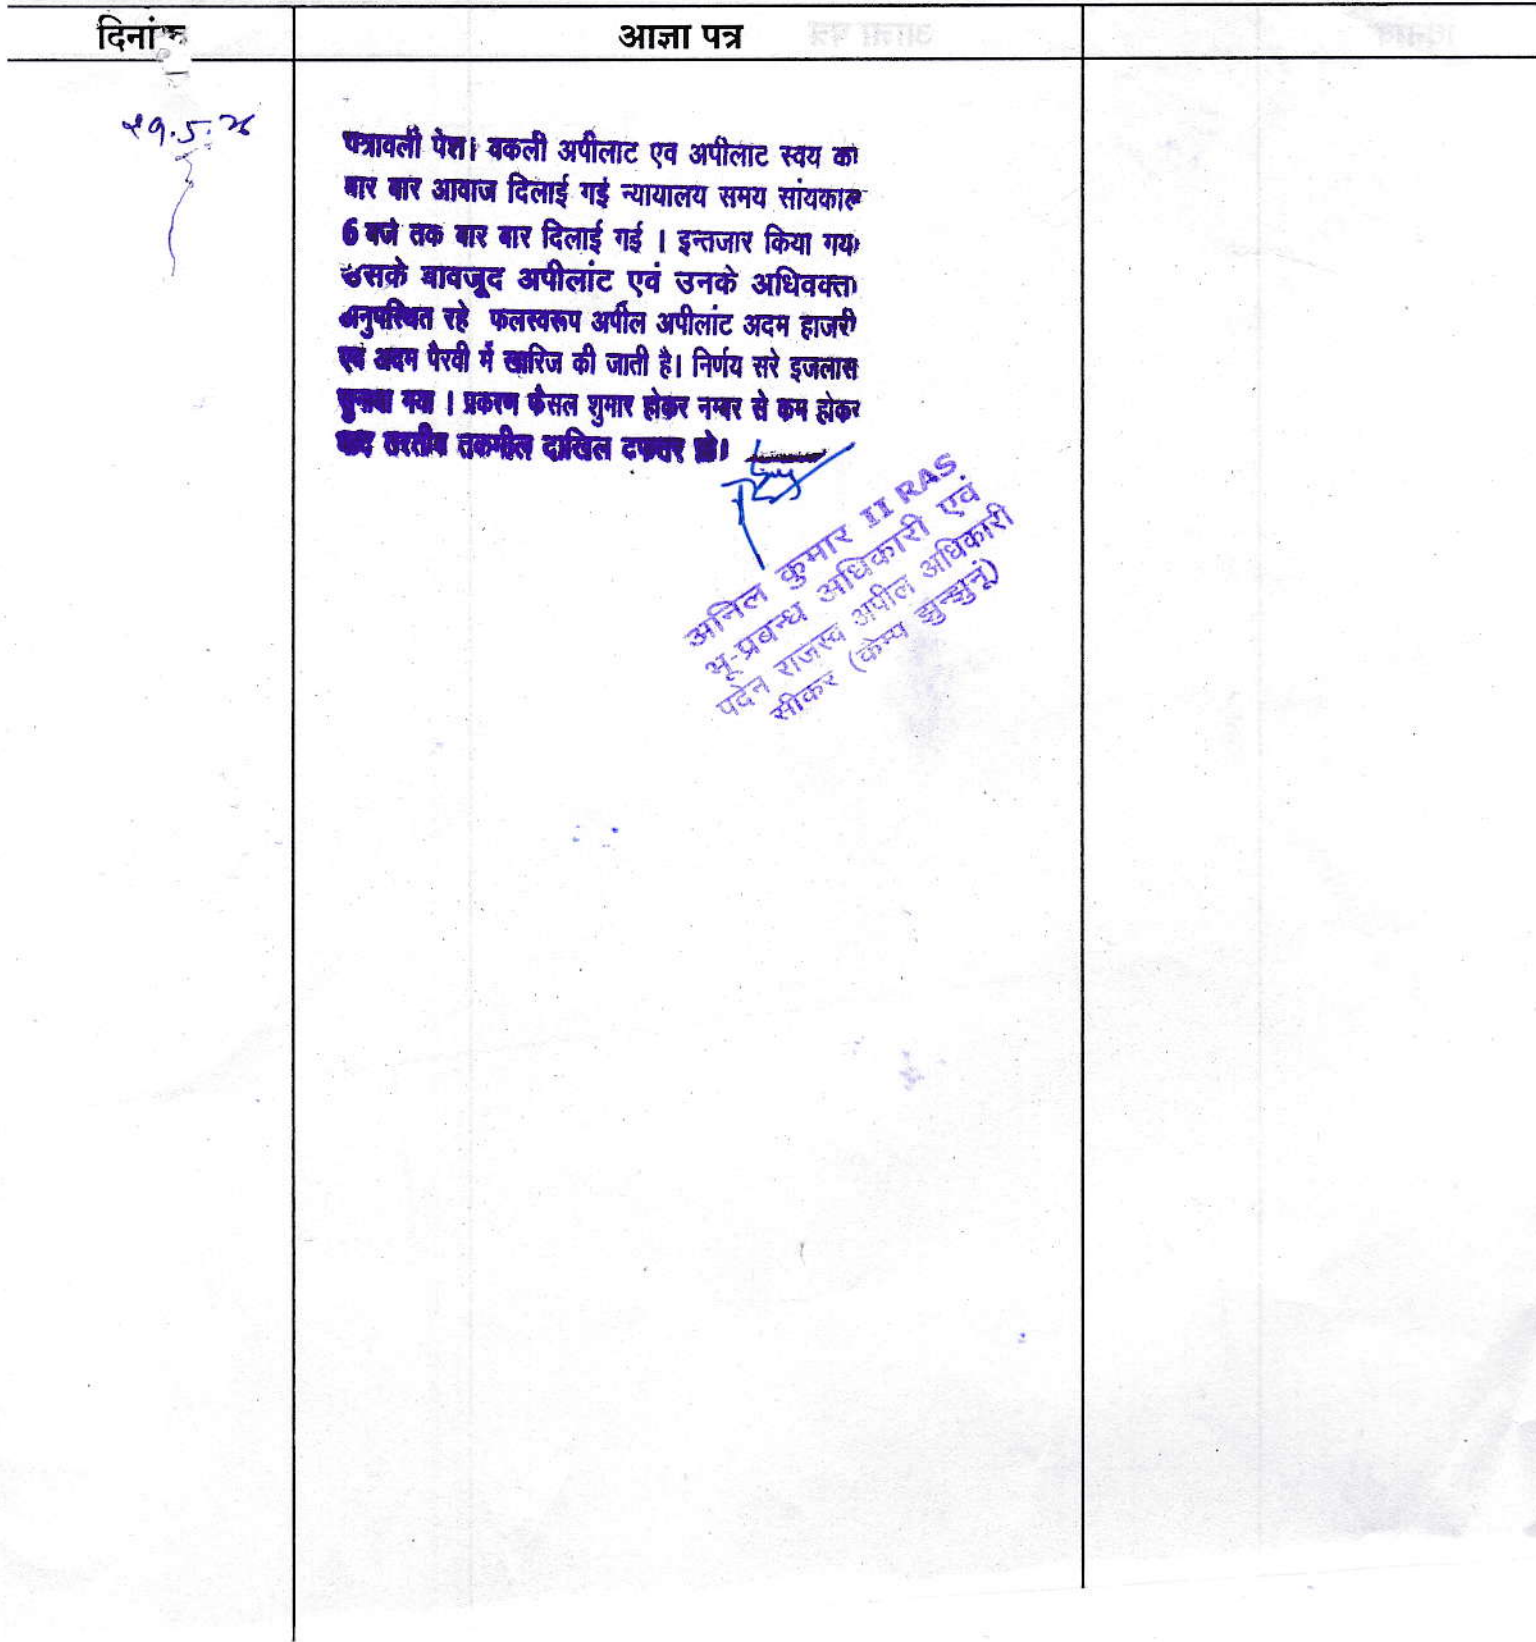 दिनांक
आज्ञा पत्र
पत्रावली पेश। वकली अपीलाट एव अपीलाट स्वय का
बार बार आवाज दिलाई गई न्यायालय समय सांयकाल
6 बजे तक बार बार दिलाई गई । इन्तजार किया गया
उसके बावजूद अपीलांट एवं उनके अधिवक्ता
अनुपस्थित रहे फलस्वरूप अपील अपीलांट अदम हाजरी
एवं अदम पैरवी में खारिज की जाती है। निर्णय सरे इजलास
सुनाया गया । प्रकरण फैसल शुमार होकर नम्बर से कम होकर
बाद तरतीब तकमील दाखिल दफ्तर हो।
अनिल कुमार II RAS
भू-प्रबन्ध अधिकारी एवं
पदेन राजस्व अपील अधिकारी
सीकर (केम्प झुन्झुनूं)